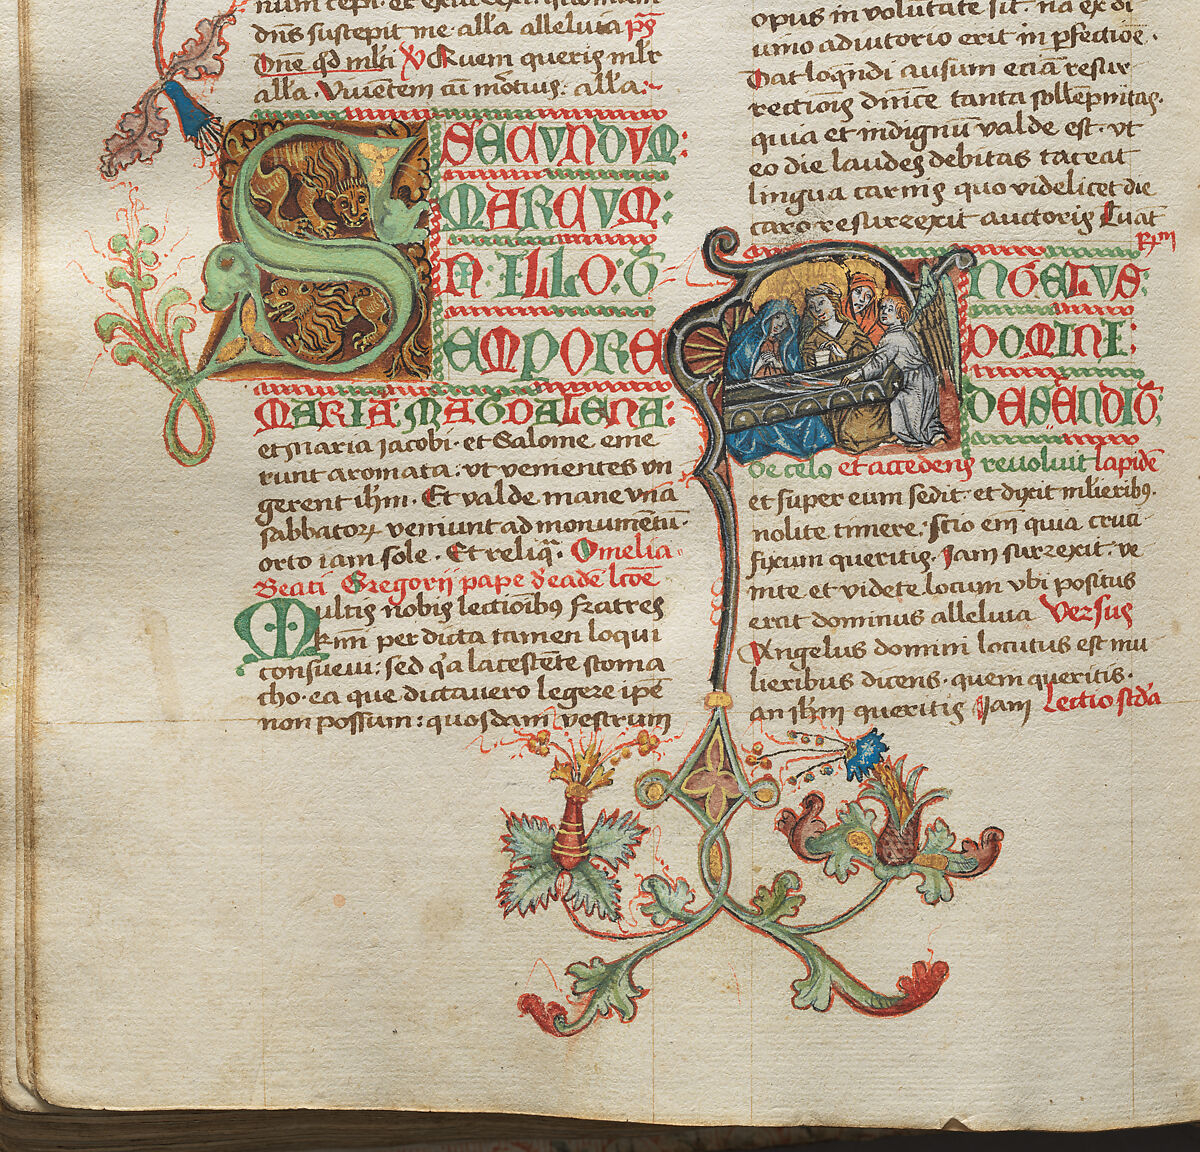 dns suscepit me. alla alleluia ps
Dne qd mlti V Quem queris mlr
alla. Viuetem cu mortuis. alla:
SECVNDVM:
MARCVM:
N. ILLO. G
TEMPORE
MARIA: MAGDALENA:
et Maria jacobi. et Salome eme
runt aromata: vt venientes vn
gerent ihm. Et valde mane vna
sabbator veniunt ad monumetu.
orto iam sole. Et reliq. Omelia.
Beati Gregorii pape
Multis nobis lectioibus fratres
kmi per dicta tamen loqui
consueui: sed qa lacescete stoma
cho. ea que dictauero legere ipe
non possum: quosdam vestrum
opus in volutate sit. na ex di
uino adiutorio erit in pfectioe.
Dat loqndi ausum ecia resur
rectiois dnice tanta sollepnitas.
quia et indignu valde est. vt
eo die laudes debitas taceat
lingua carnis quo videlicet die
caro resurrexit auctoris
ANGELVS.
DOMINI:
DESENDIT
de celo et accedens reuoluit lapide
et super eum sedit. et dixit mlieribus.
nolite timere. scio em quia cruci
fixum queritis. Jam surrexit. ve
nite et videte locum vbi positus
erat dominus alleluia Versus
Angelus domini locutus est mu
lieribus dicens. quem queritis.
an ihm queritis Jam Lectio scda